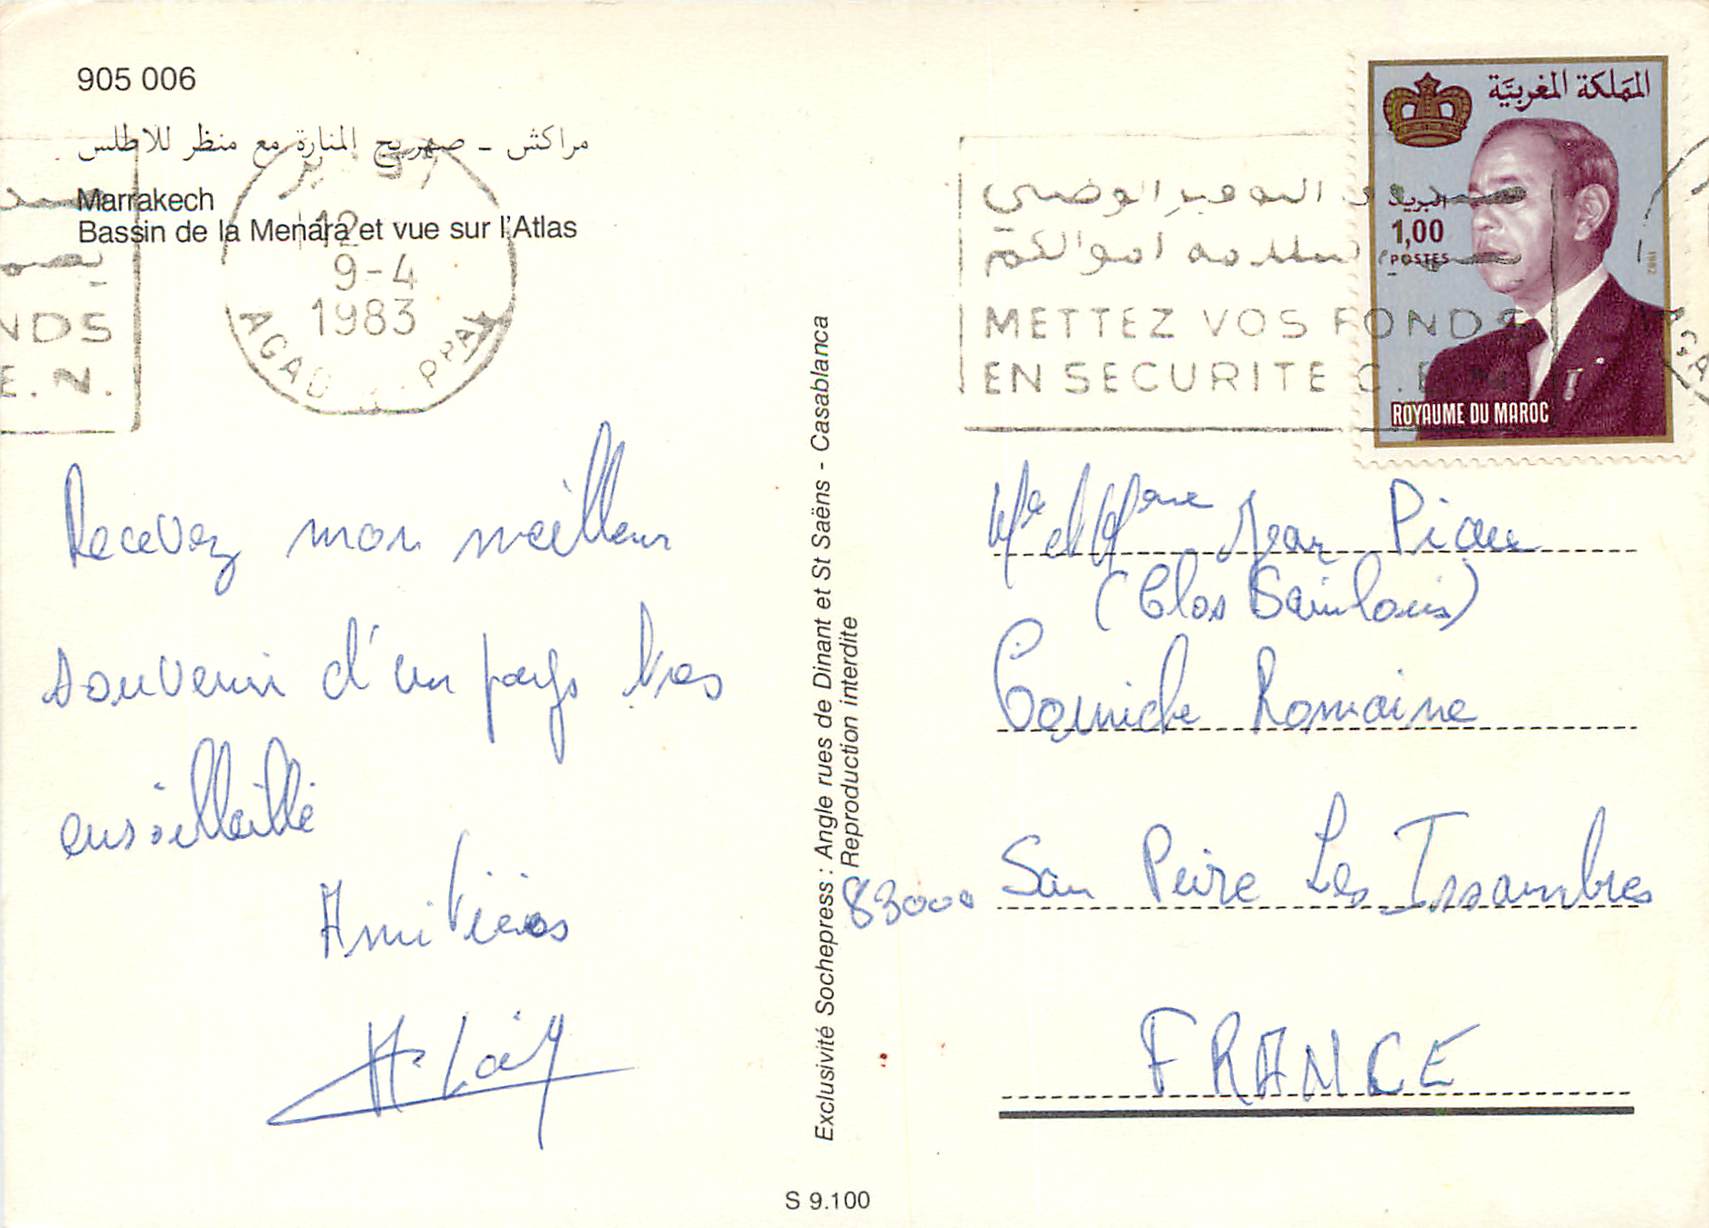 905 006
مراكش ـ صهريج المنارة مع منظر للاطلس
Marrakech
Bassin de la Menara et vue sur l'Atlas
NDS
E. N.
12
9-4
1983
AGAD PPAL
Recevez mon meilleur
souvenir d'un pays très
ensoilleillé
Amitiées
Exclusivité Sochepress : Angle rues de Dinant et St Saëns - Casablanca
Reproduction interdite
S 9.100
المملكة المغربية
البريد
1,00
POSTES
1982
ROYAUME DU MAROC
اموالكم
METTEZ VOS FONDS
EN SECURITE C.E.N.
Mr et Mme Jean Picue
(Clos Sainlouis)
Corniche Romaine
83000 San Peire Les Issambres
FRANCE